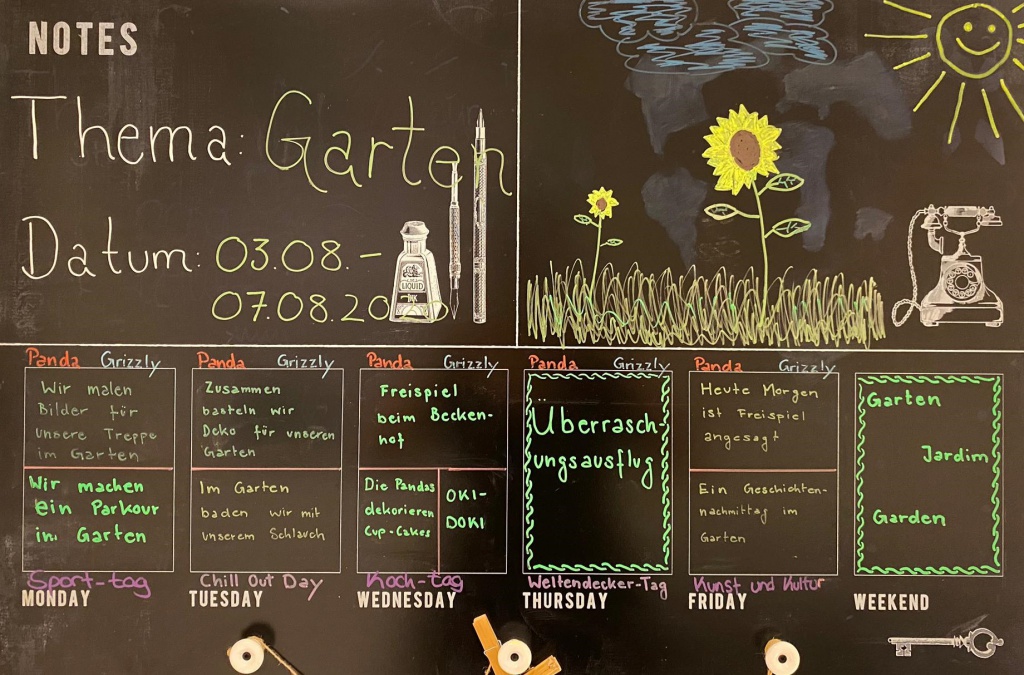 NOTES
Thema: Garten
Datum: 03.08. –
07.08.20
LIQUID
INK
Panda Grizzly
Wir malen
Bilder für
unsere Treppe
im Garten
Wir machen
ein Parkour
im Garten
Sport-tag
MONDAY
Panda Grizzly
Zusammen
basteln wir
Deko für unseren
Garten
Im Garten
baden wir mit
unserem Schlauch
Chill Out Day
TUESDAY
Panda Grizzly
Freispiel
beim Becken-
hof
Die Pandas
dekorieren
Cup-Cakes
OKI-
DOKI
Koch-tag
WEDNESDAY
Panda Grizzly
Überrasch-
ungsausflug
Weltendecker-Tag
THURSDAY
Panda Grizzly
Heute Morgen
ist Freispiel
angesagt
Ein Geschichten-
nachmittag im
Garten
Kunst und Kultur
FRIDAY
Garten
Jardim
Garden
WEEKEND